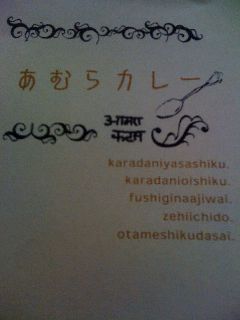 あむらカレー
karadaniyasashiku.
karadanioishiku.
fushiginaajiwai.
zehiichido.
otameshikudasai.